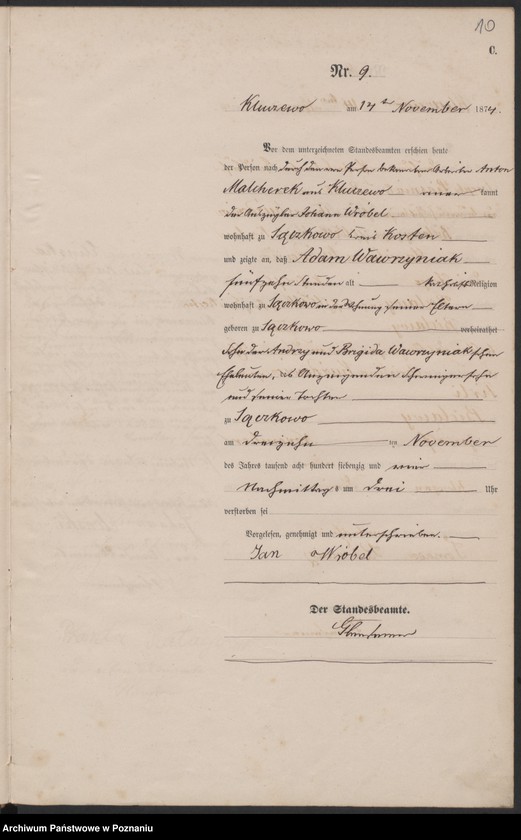 10
C.
Nr. 9.
Kluczewo am 14ten November 1874.
Vor dem unterzeichneten Standesbeamten erschien heute
der Person nach durch den von Person bekannten Arbeiter Anton
Malcherek aus Kluczewo kannt
der Auszügler Johann Wróbel
wohnhaft zu Sączkowo Kreis Kosten
und zeigte an, daß Adam Wawrzyniak
fünfzehn Stunden alt katholischer Religion
wohnhaft zu Sączkowo in der Wohnung seiner Eltern
geboren zu Sączkowo verheirathet
Sohn der Andrzej und Brigida Wawrzyniakschen
Eheleute, des Anzeigenden Schwiegersohn
und seiner Tochter
zu Sączkowo
am dreizehnten November
des Jahres tausend acht hundert siebenzig und vier
Nachmittags um drei Uhr
verstorben sei
Vorgelesen, genehmigt und unterschrieben.
Jan Wróbel
Der Standesbeamte.
Archiwum Państwowe w Poznaniu